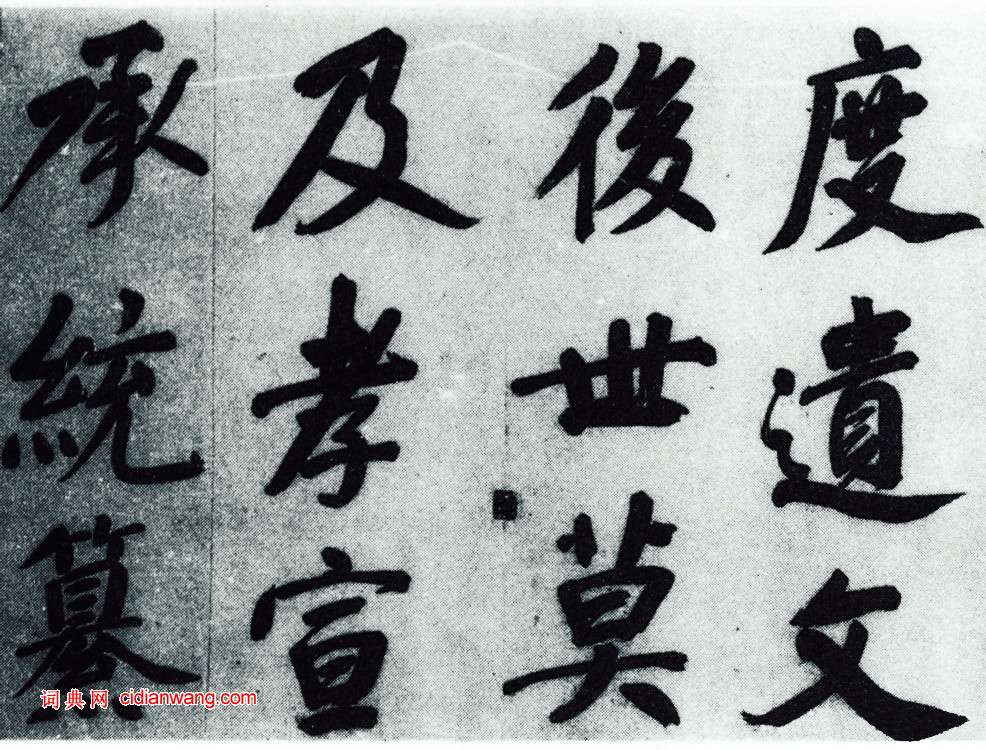 度遺文
後世莫
及孝宣
承統纂
词典网 cidianwang.com